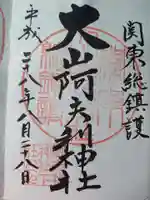 関東総鎮護
大山阿夫利神社
平成二十八年八月二十八日